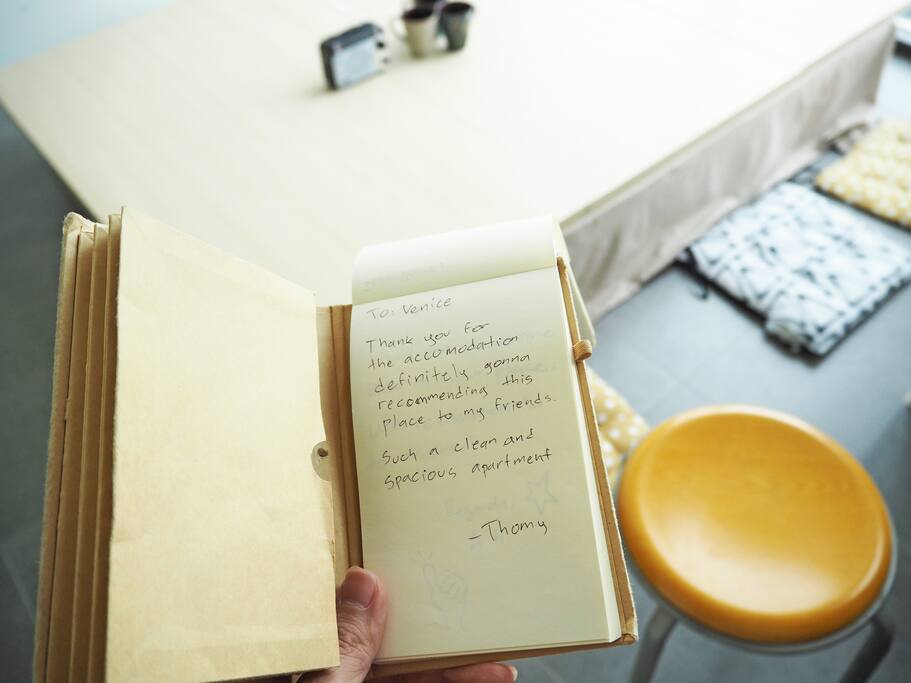 To: Venice
Thank you for
the accomodation
definitely gonna
recommending this
place to my friends.
Such a clean and
spacious apartment
-Thomy